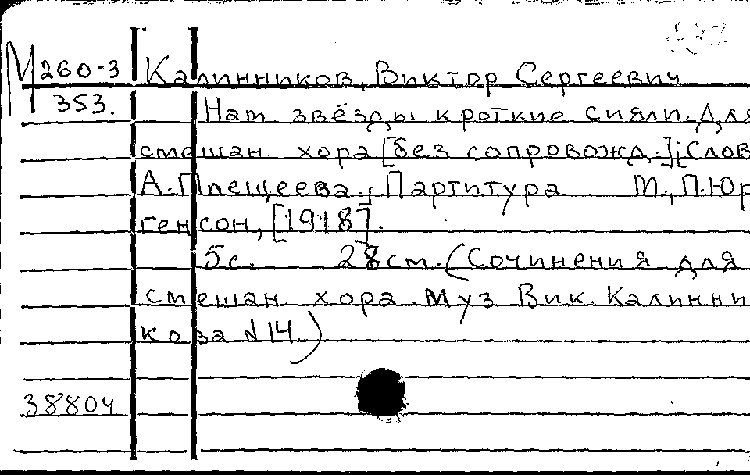 М 260-3 Калинников, Виктор Сергеевич
353. Нам звёзды кроткие сияли. Для
смешан хора [без сопровожд.]; Слов
А. Плещеева. Партитура М., П. Юр
генсон, [1918].
5с. 28см. (Сочинения для
смешан. хора. Муз Вик. Калинни
кова №14.)
38804